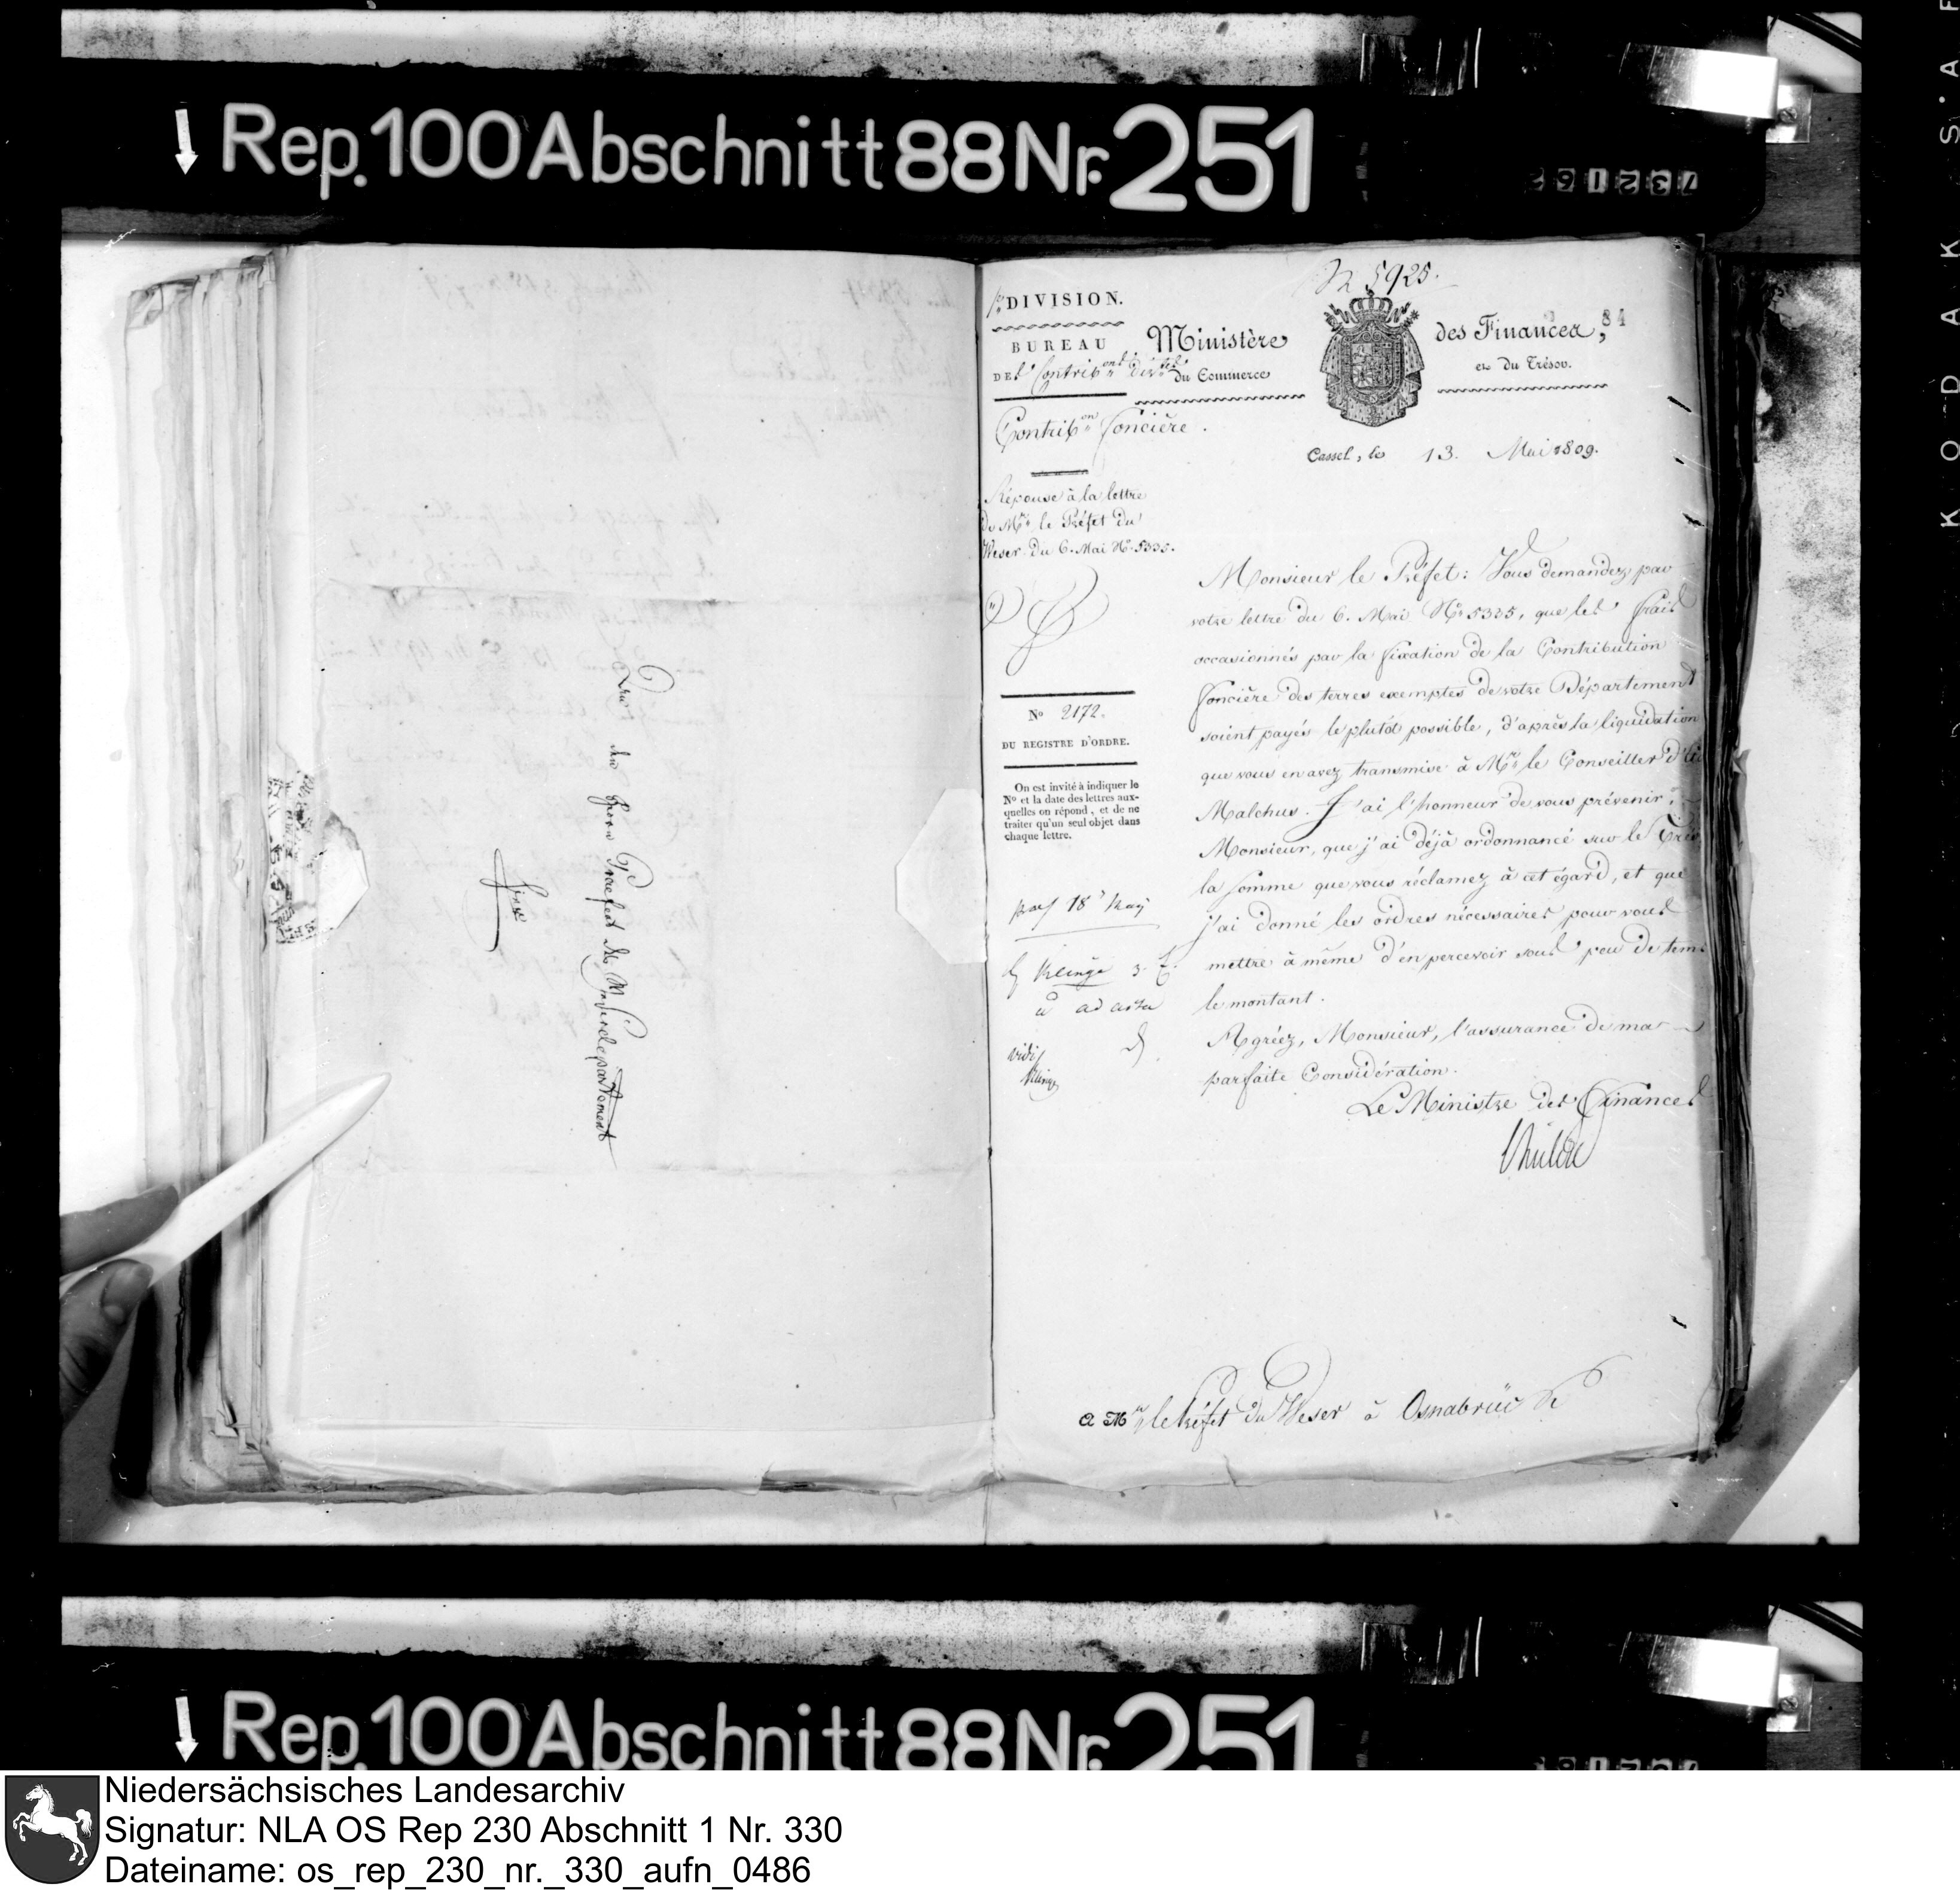 Rep. 100 Abschnitt 88 Nr. 251
An
den Herrn Praefect des Weserdepartement
hier
N 5925.
1re DIVISION.
BUREAU
DES Contribons Dirtes
Ministère
des Finances,
84
du Commerce
et du Trésor.
Contribon foncière.
Cassel, le 13. Mai 1809.
Réponse à la lettre
de Mr. le Préfet du
Weser du 6. Mai No. 5335.
No 2172.
DU REGISTRE D'ORDRE.
On est invité à indiquer le
No et la date des lettres aux-
quelles on répond, et de ne
traiter qu'un seul objet dans
chaque lettre.
Monsieur le Préfet: Vous demandez par
votre lettre du 6. Mai No. 5335, que les frais
occasionnés par la fixation de la Contribution
foncière des terres exemptes de votre Département
soient payés le plutôt possible, d'après la liquidation
que vous en avez transmise à Mr. le Conseiller d'
Malchus. J'ai l'honneur de vous prévenir,
Monsieur, que j'ai déjà ordonnancé sur le Trés
la somme que vous réclamez à cet égard, et que
j'ai donné les ordres nécessaires pour vous
mettre à même d'en percevoir sous peu de tems
le montant.
Agréez, Monsieur, l'assurance de ma
parfaite Considération.
Le Ministre des Finances
praes 18 May
ad acta
vidi
A Mr. le Préfet du Weser à Osnabrück
Rep. 100 Abschnitt 88 Nr. 251
KODAK S.A.F
Niedersächsisches Landesarchiv
Signatur: NLA OS Rep 230 Abschnitt 1 Nr. 330
Dateiname: os_rep_230_nr._330_aufn_0486